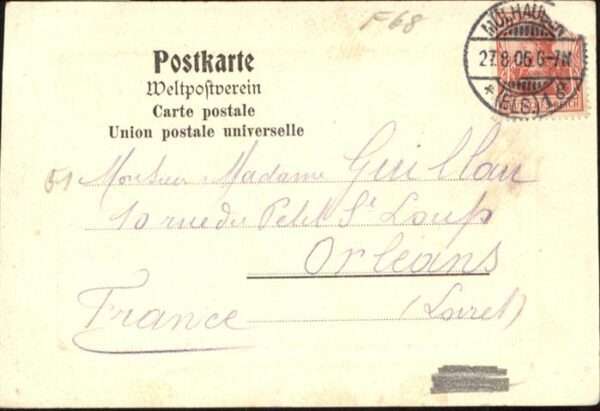 F68
MÜLHAUSEN
27.8.06.6-7N
* (ELS.) 1 g
Postkarte
Weltpostverein
Carte postale
Union postale universelle
51 Monsieur Madame Guillau
10 rue du Petit St Loup
Orléans
France (Loiret)